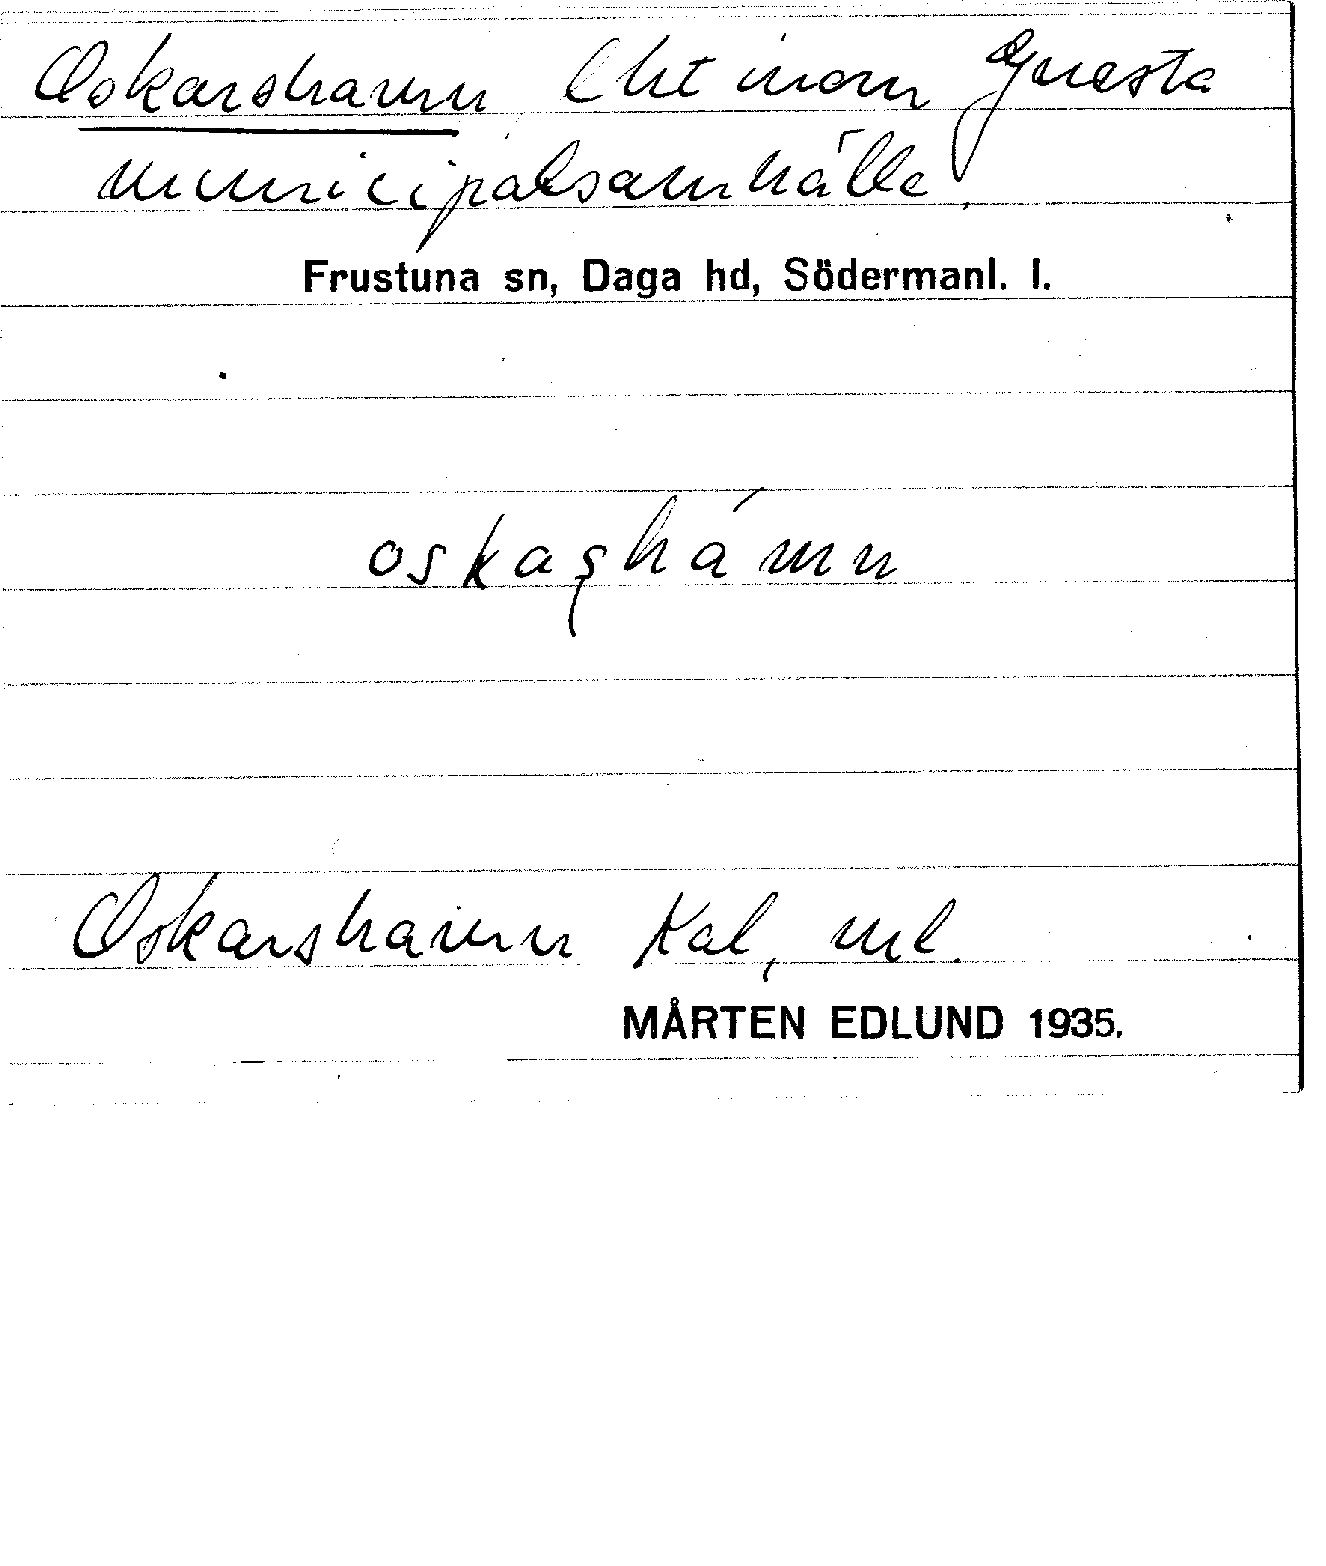 Oskarshamn Lht inom Gnesta
municipalsamhälle.
Frustuna sn, Daga hd, Södermanl. l.
oskaʂhámn
Oskarshamn Kal, ml.
MÅRTEN EDLUND 1935.